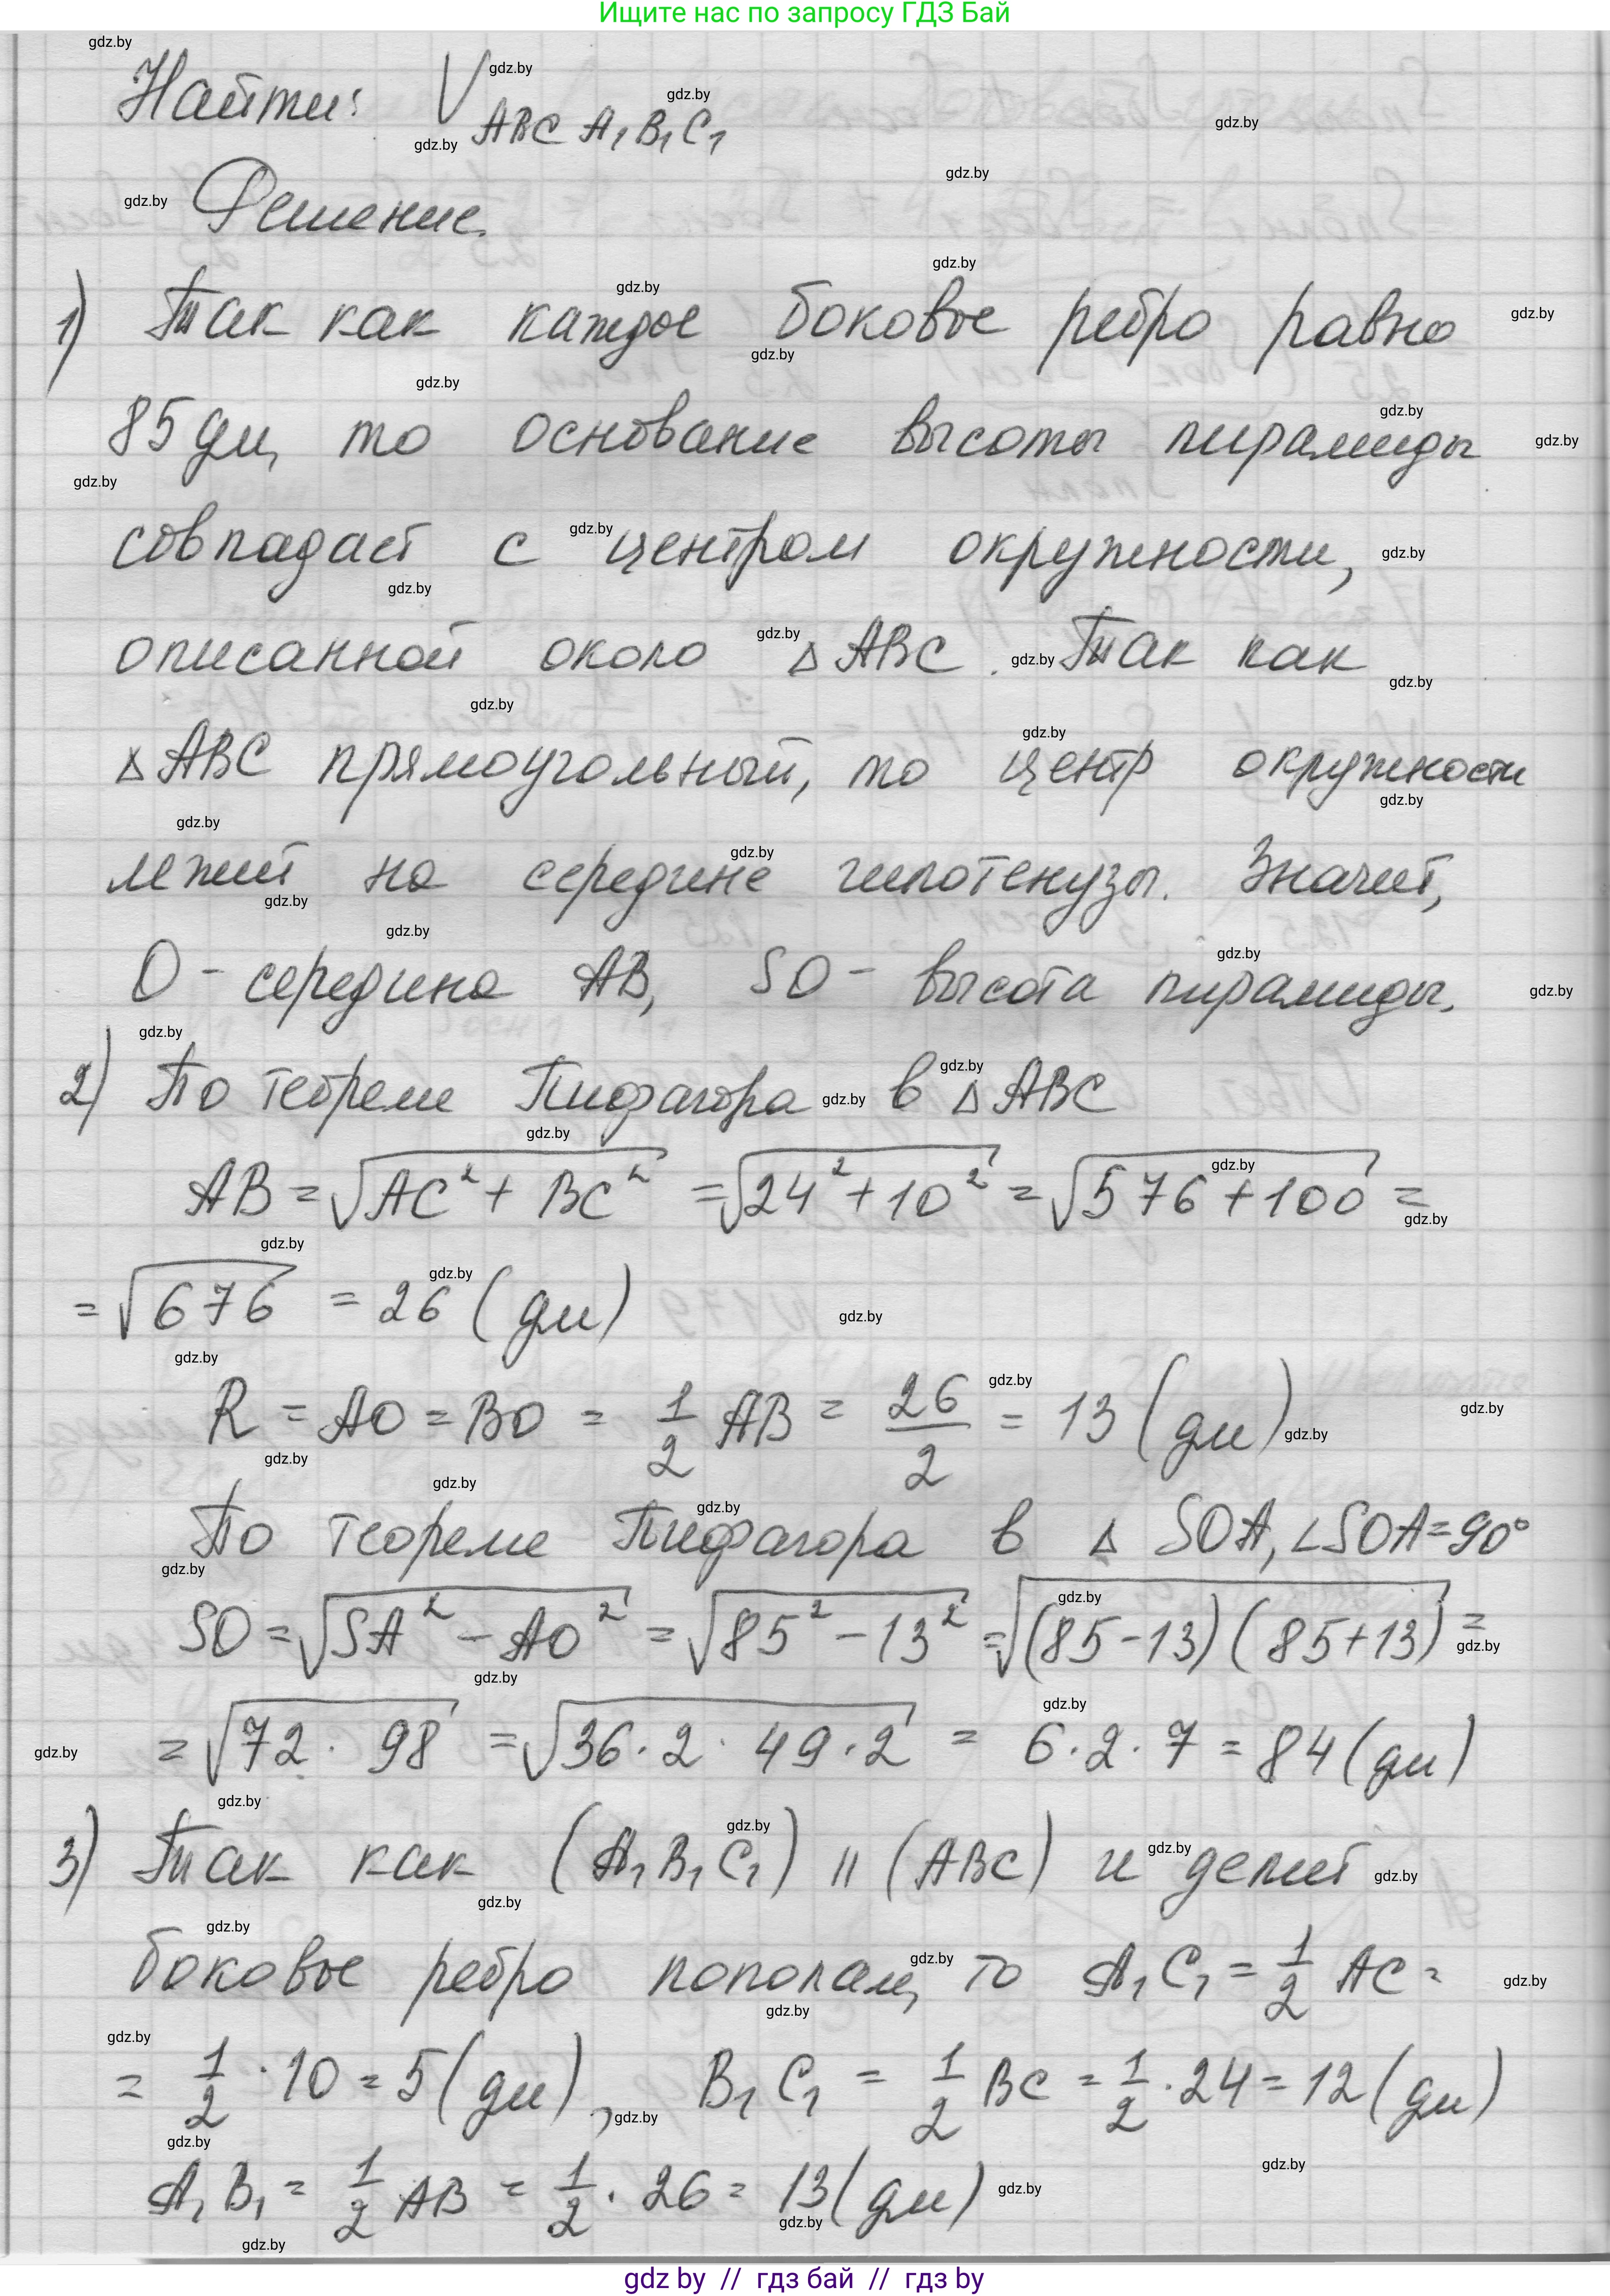 Ищите нас по запросу ГДЗ Бай
Найти: V ABCA₁B₁C₁
Решение.
1) Так как каждое боковое ребро равно
85 дм, то основание высоты пирамиды
совпадает с центром окружности,
описанной около △ABC. Так как
△ABC прямоугольный, то центр окружности
лежит на середине гипотенузы. Значит,
O - середина AB, SO - высота пирамиды.
2) По теореме Пифагора в △ABC
AB = √(AC² + BC²) = √(24² + 10²) = √(576 + 100) =
= √676 = 26 (дм)
R = AO = BO = 1/2 AB = 26/2 = 13 (дм)
По теореме Пифагора в △ SOA, ∠SOA = 90°
SO = √(SA² - AO²) = √(85² - 13²) = √((85-13)(85+13)) =
= √(72 · 98) = √(36 · 2 · 49 · 2) = 6 · 2 · 7 = 84 (дм)
3) Так как (A₁B₁C₁) || (ABC) и делит
боковое ребро пополам, то A₁C₁ = 1/2 AC =
= 1/2 · 10 = 5 (дм), B₁C₁ = 1/2 BC = 1/2 · 24 = 12 (дм)
A₁B₁ = 1/2 AB = 1/2 · 26 = 13 (дм)
gdz by // гдз бай // гдз by